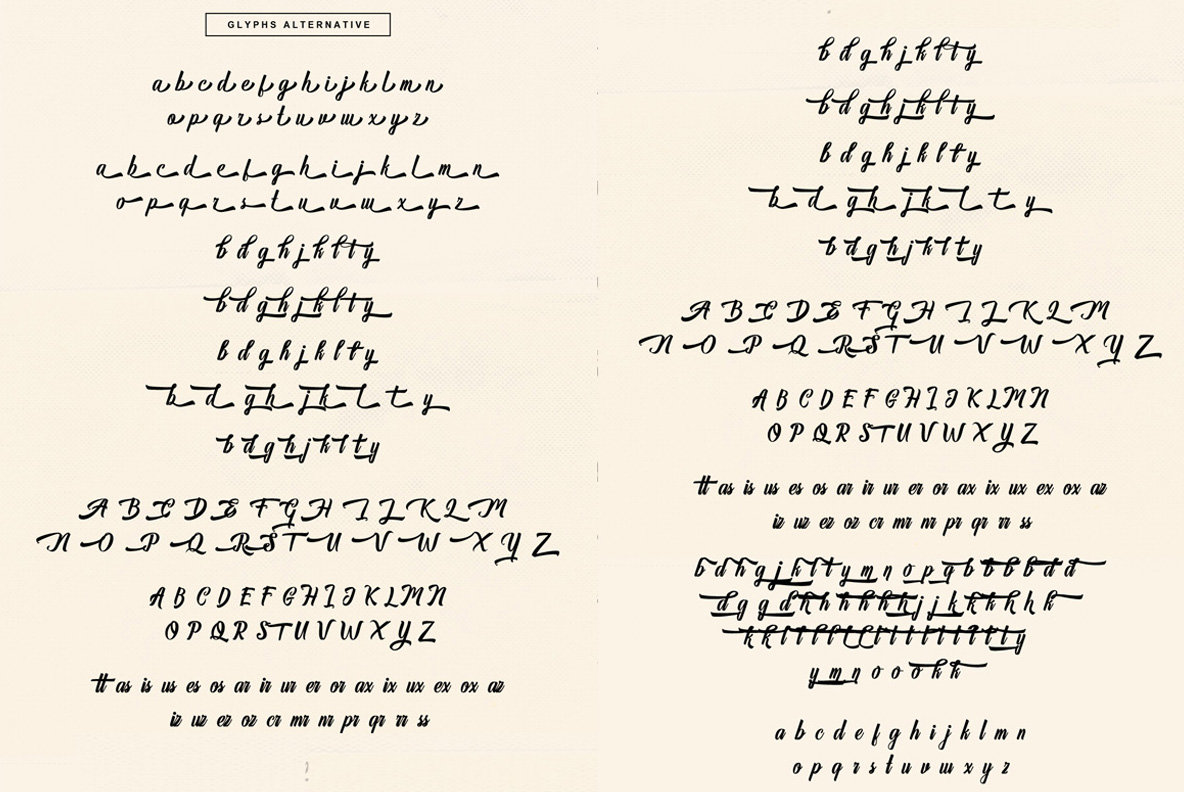 GLYPHS ALTERNATIVE
a b c d e f g h i j k l m n
o p q r s t u v w x y z
a b c d e f g h i j k l m n
o p q r s t u v w x y z
b d g h j k l t y
b d g h j k l t y
b d g h j k l t y
b d g h j k l t y
b d g h j k l t y
A B C D E F G H I J K L M
N O P Q R S T U V W X Y Z
A B C D E F G H I J K L M N
O P Q R S T U V W X Y Z
tt as is us es os ar ir ur er or ax ix ux ex ox az
iz uz ez oz cr mr nr pr qr rr ss
b d g h j k l t y
b d g h j k l t y
b d g h j k l t y
b d g h j k l t y
b d g h j k l t y
A B C D E F G H I J K L M
N O P Q R S T U V W X Y Z
A B C D E F G H I J K L M N
O P Q R S T U V W X Y Z
tt as is us es os ar ir ur er or ax ix ux ex ox az
iz uz ez oz cr mr nr pr qr rr ss
b d h g j k l t y m n o p q b b b b d d
y m n o o o k k
a b c d e f g h i j k l m n
o p q r s t u v w x y z